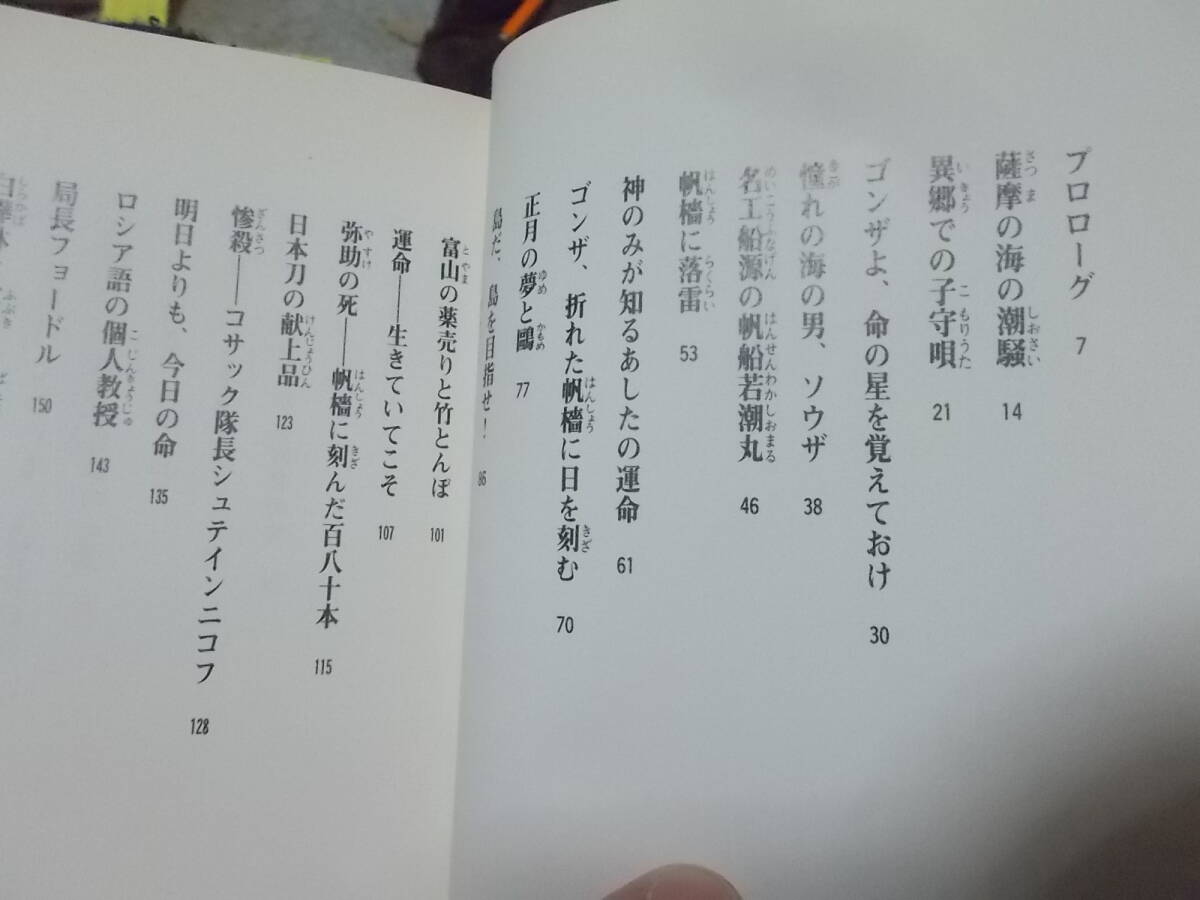 プロローグ 7
薩摩の海の潮騒 14
異郷での子守唄 21
ゴンザよ、命の星を覚えておけ 30
憧れの海の男、ソウザ 38
名工船源の帆船若潮丸 46
帆檣に落雷 53
神のみが知るあしたの運命 61
ゴンザ、折れた帆檣に日を刻む 70
正月の夢と鷗 77
島だ、島を目指せ！
富山の薬売りと竹とんぼ 101
運命――生きていてこそ 107
弥助の死――帆檣に刻んだ百八十本 115
日本刀の献上品 123
惨殺――コサック隊長シュテインニコフ 128
明日よりも、今日の命 135
ロシア語の個人教授 143
局長フョードル 150